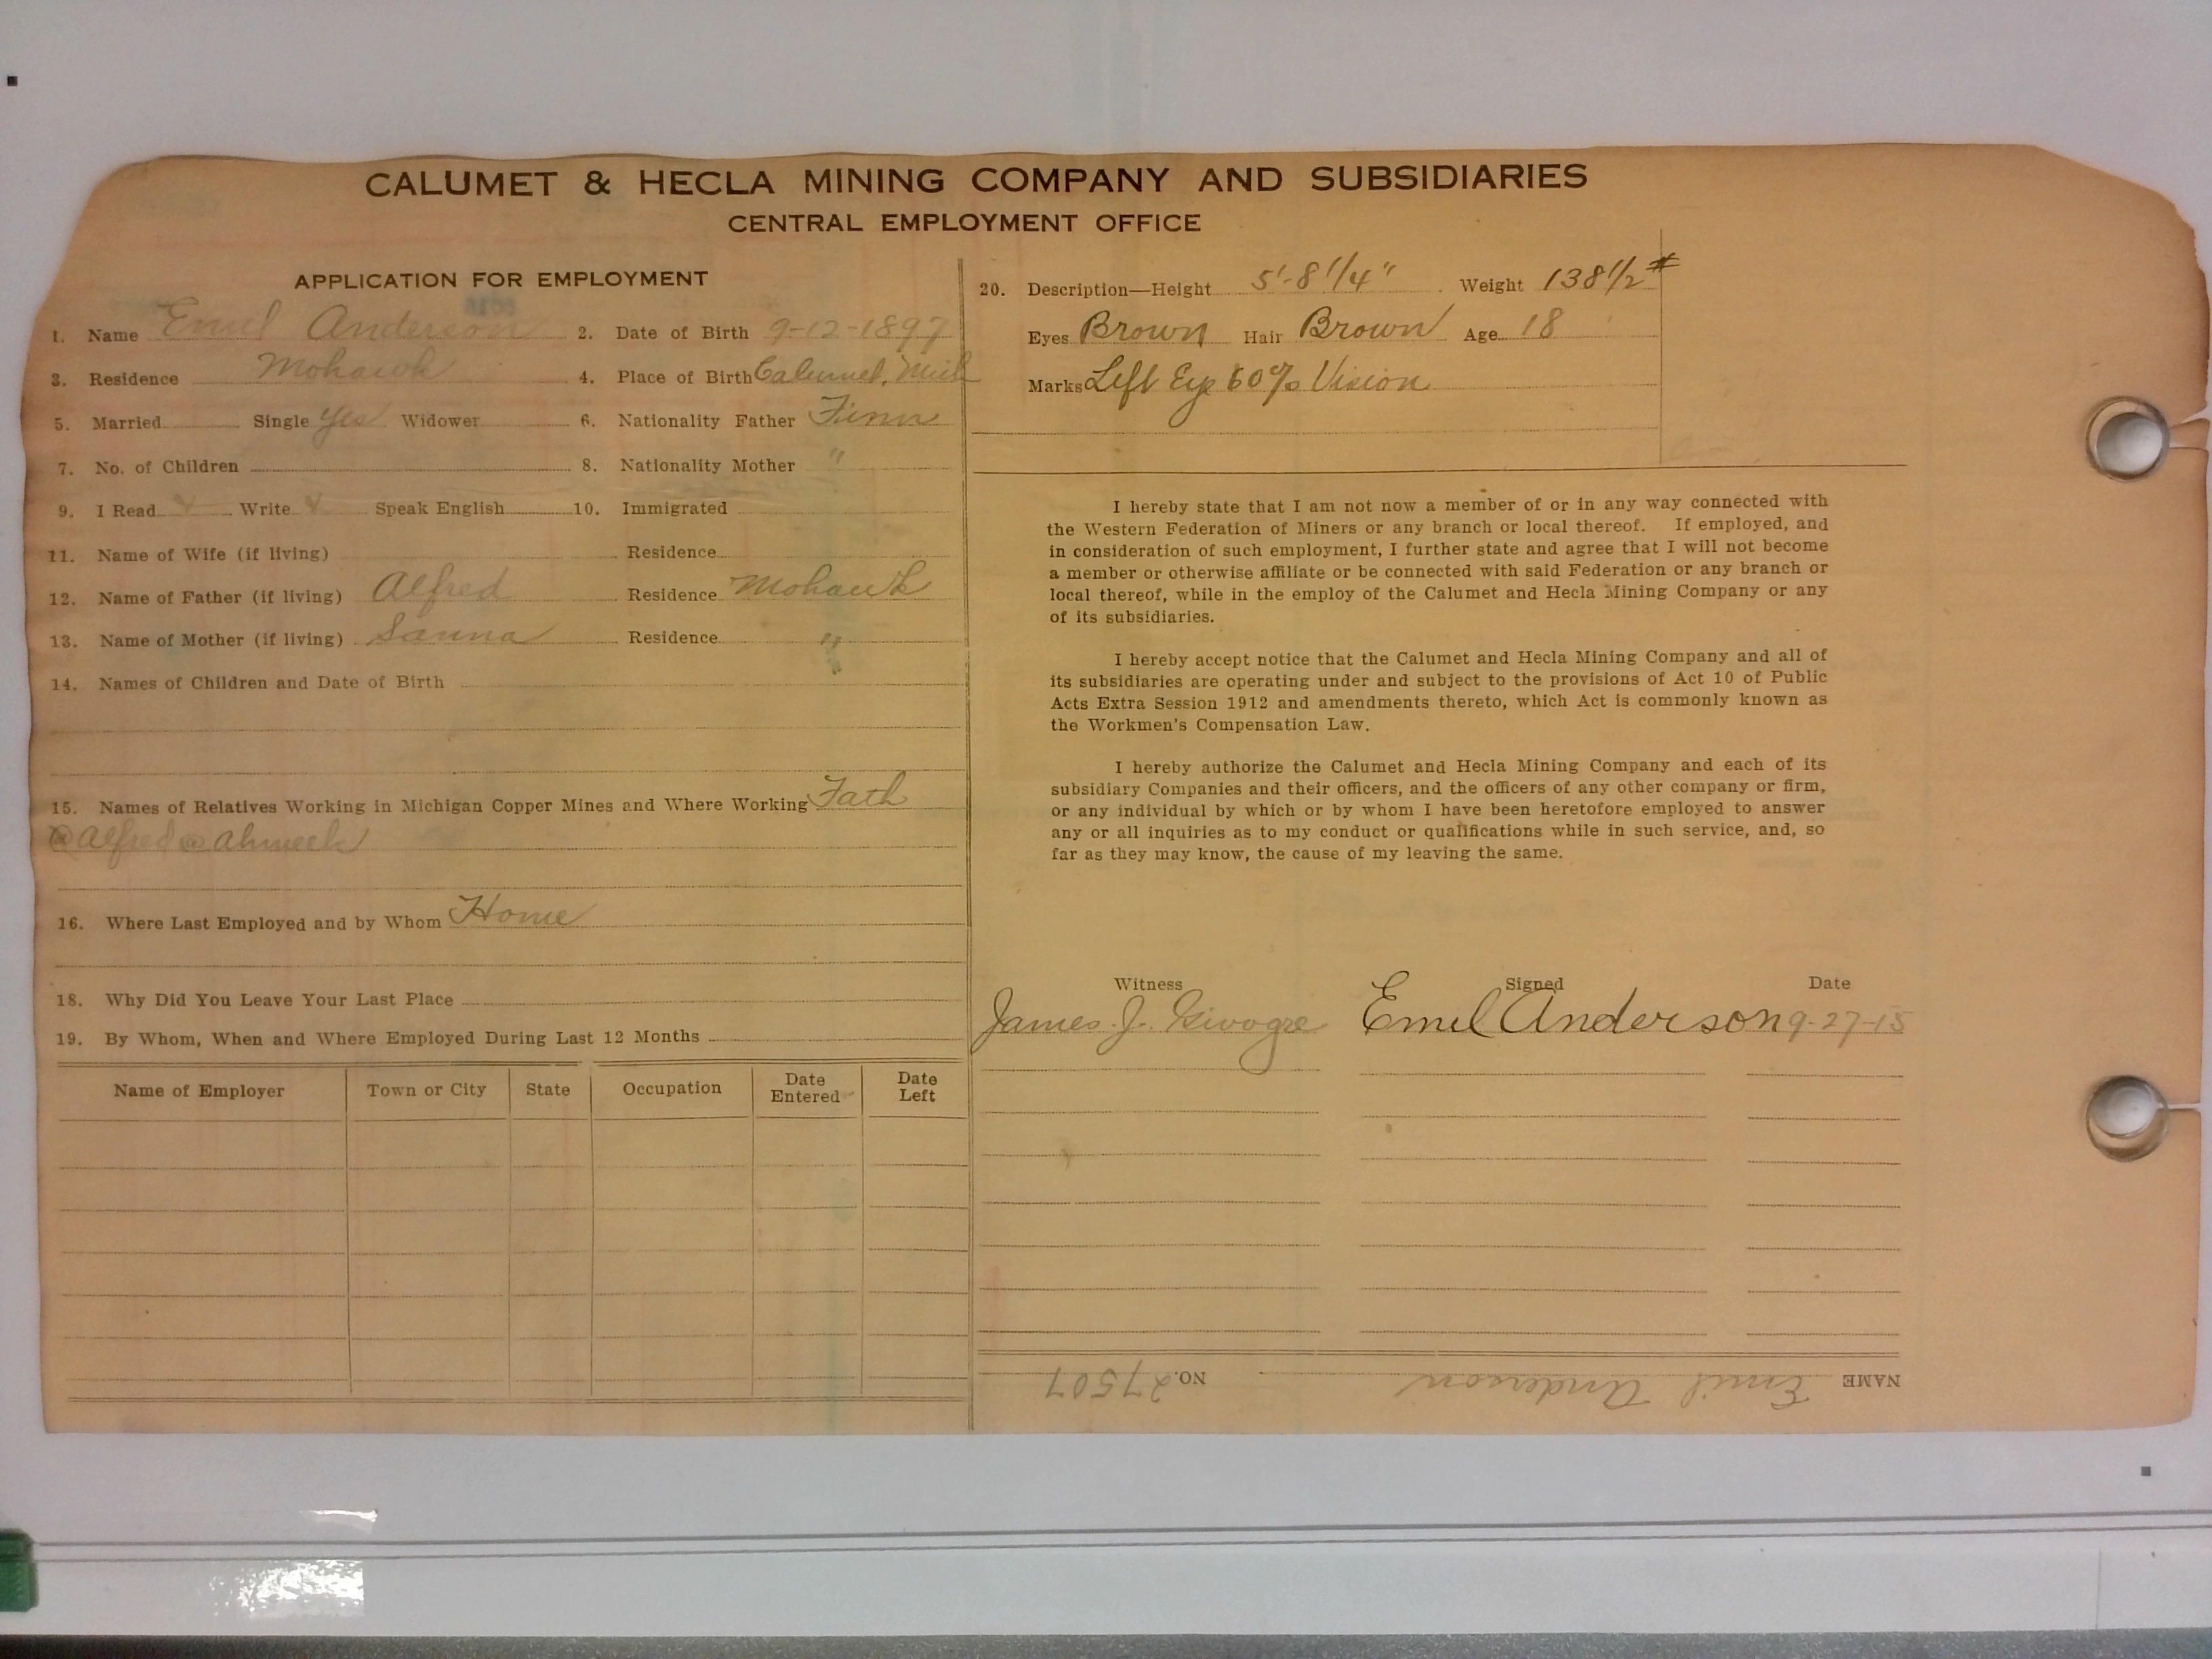 CALUMET & HECLA MINING COMPANY AND SUBSIDIARIES
CENTRAL EMPLOYMENT OFFICE
APPLICATION FOR EMPLOYMENT
1. Name Emil Anderson 2. Date of Birth 9-12-1897
3. Residence Mohawk 4. Place of Birth Calumet, Mich
5. Married Single Yes Widower 6. Nationality Father Finn
7. No. of Children 8. Nationality Mother "
9. I Read Write Speak English 10. Immigrated
11. Name of Wife (if living) Residence
12. Name of Father (if living) Alfred Residence Mohawk
13. Name of Mother (if living) Sanna Residence "
14. Names of Children and Date of Birth
15. Names of Relatives Working in Michigan Copper Mines and Where Working Fath
@ Alfred @ Ahmeek
16. Where Last Employed and by Whom Home
18. Why Did You Leave Your Last Place
19. By Whom, When and Where Employed During Last 12 Months
Name of Employer Town or City State Occupation Date Entered Date Left
20. Description—Height 5'-8 1/4" Weight 138 1/2 #
Eyes Brown Hair Brown Age 18
Marks Left Eye 60% Vision
I hereby state that I am not now a member of or in any way connected with
the Western Federation of Miners or any branch or local thereof. If employed, and
in consideration of such employment, I further state and agree that I will not become
a member or otherwise affiliate or be connected with said Federation or any branch or
local thereof, while in the employ of the Calumet and Hecla Mining Company or any
of its subsidiaries.
I hereby accept notice that the Calumet and Hecla Mining Company and all of
its subsidiaries are operating under and subject to the provisions of Act 10 of Public
Acts Extra Session 1912 and amendments thereto, which Act is commonly known as
the Workmen's Compensation Law.
I hereby authorize the Calumet and Hecla Mining Company and each of its
subsidiary Companies and their officers, and the officers of any other company or firm,
or any individual by which or by whom I have been heretofore employed to answer
any or all inquiries as to my conduct or qualifications while in such service, and, so
far as they may know, the cause of my leaving the same.
Witness Signed Date
James J. Emil Anderson 9-27-15
NAME Emil Anderson NO. 27507